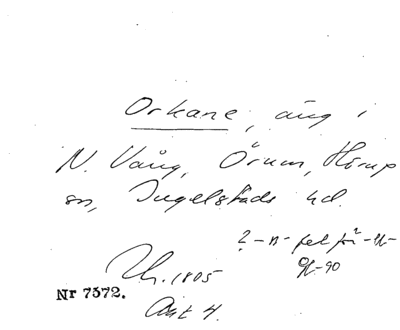 Orkane, äng i
N. Vång, Örum, Hörup
sn, Ingelstads hd.
? -n- fel för -u-
-90
1805
Nr 7372.
Akt 4.